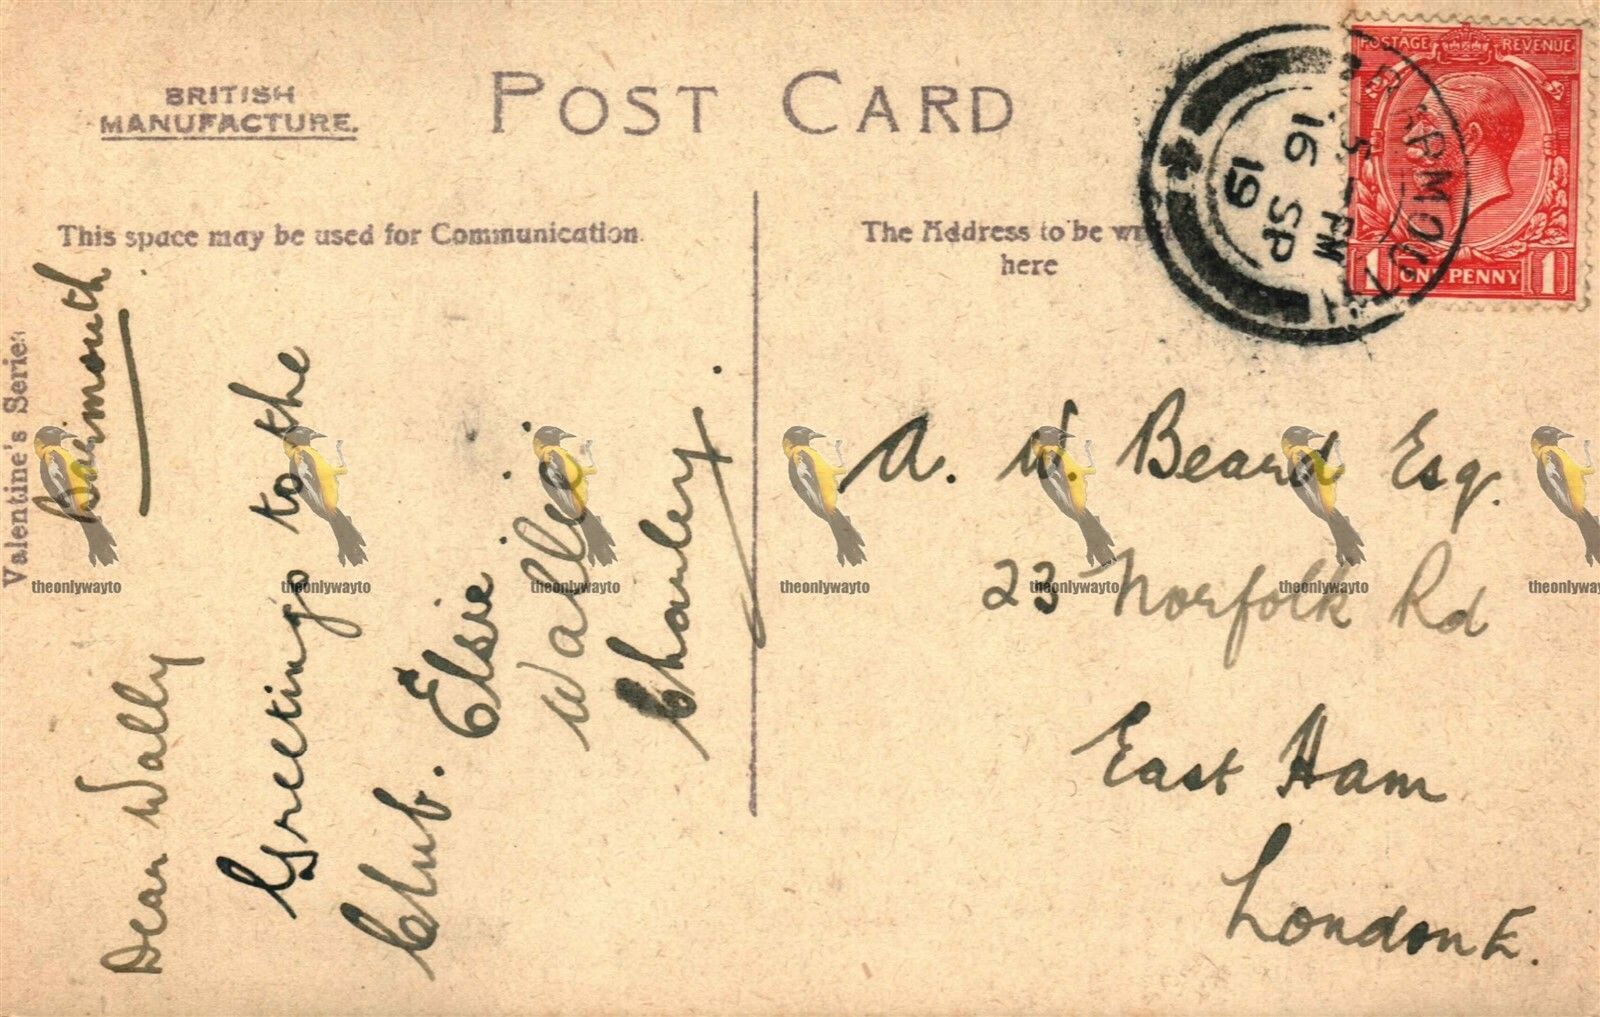 BRITISH
MANUFACTURE.
POST CARD
This space may be used for Communication.
The Address to be
here
Valentine's Series
POSTAGE REVENUE
1 ONE PENNY 1
BARMOUTH
5 - PM
16 SP
19
Barmouth
Dear Wally
Greetings to the
Club. Elsie
Wallie
Charley.
A. W. Beard Esq.
23 Norfolk Rd
East Ham
London E.
theonlywayto theonlywayto theonlywayto theonlywayto theonlywayto theonlywayto theonlywayto